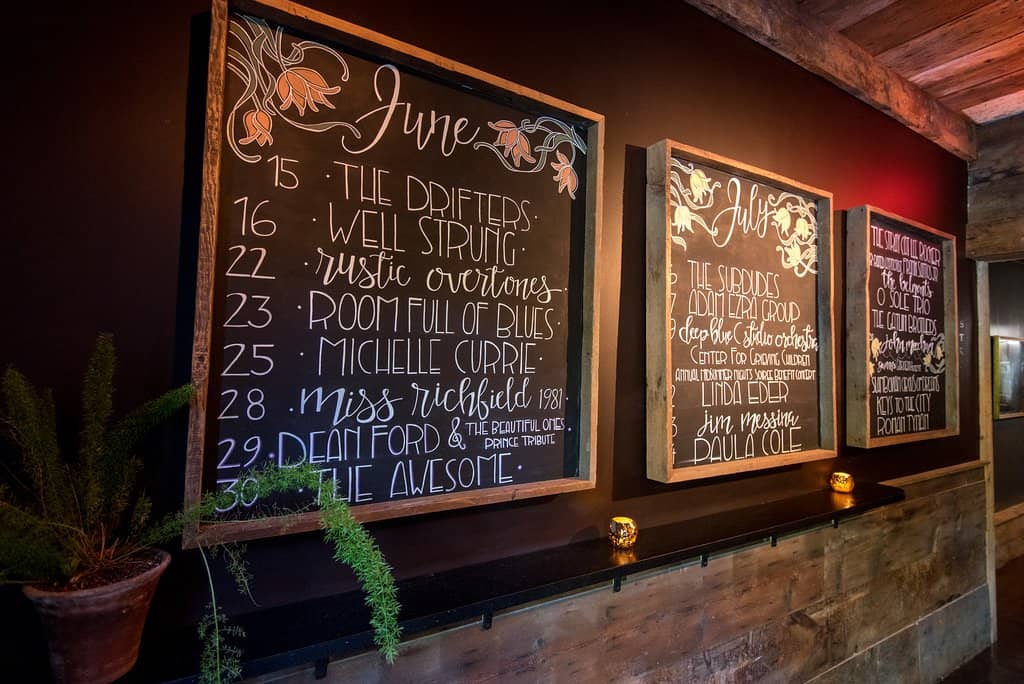 June
15 · THE DRIFTERS ·
16 · WELL STRUNG ·
22 · rustic overtones ·
23 · ROOM FULL OF BLUES ·
25 · MICHELLE CURRIE ·
28 · miss richfield 1981 ·
29 · DEAN FORD & THE BEAUTIFUL ONES PRINCE TRIBUTE
30 · THE AWESOME ·
July
THE SUBDUDES
ADAM EZRA GROUP
deep blue C studio orchestra
CENTER FOR GRIEVING CHILDREN
ANNUAL MIDSUMMER NIGHTS SOIREE BENEFIT CONCERT
LINDA EDER
jim messina
PAULA COLE
THE STRAY CAT LEE ROCKER
the belmonts
O SOLE TRIO
THE GATLIN BROTHERS
john
KEYS TO THE CITY
RONAN TYNAN